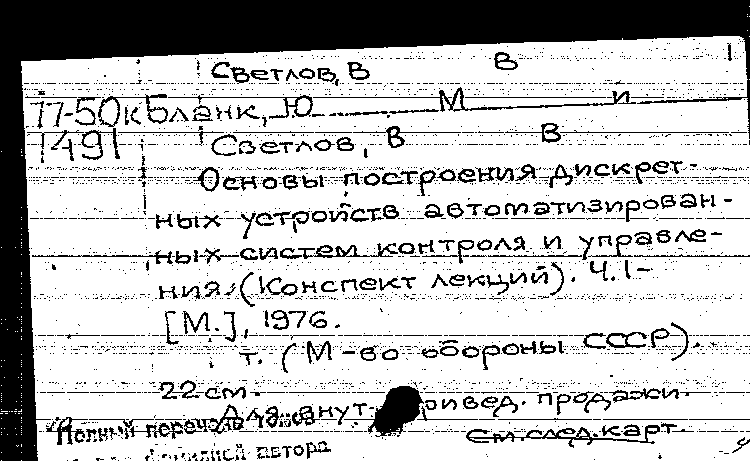 Светлов, В В 1
77-50к Бланк, Ю М и
1491 Светлов, В В
Основы построения дискрет-
ных устройств автоматизирован-
ных систем контроля и управле-
ния. (Конспект лекций). Ч. 1-
[М.], 1976.
т. (М-во обороны СССР).
22 см.
Для внут ривед. продажи.
Полный перечень томов
См. след. карт.
автора